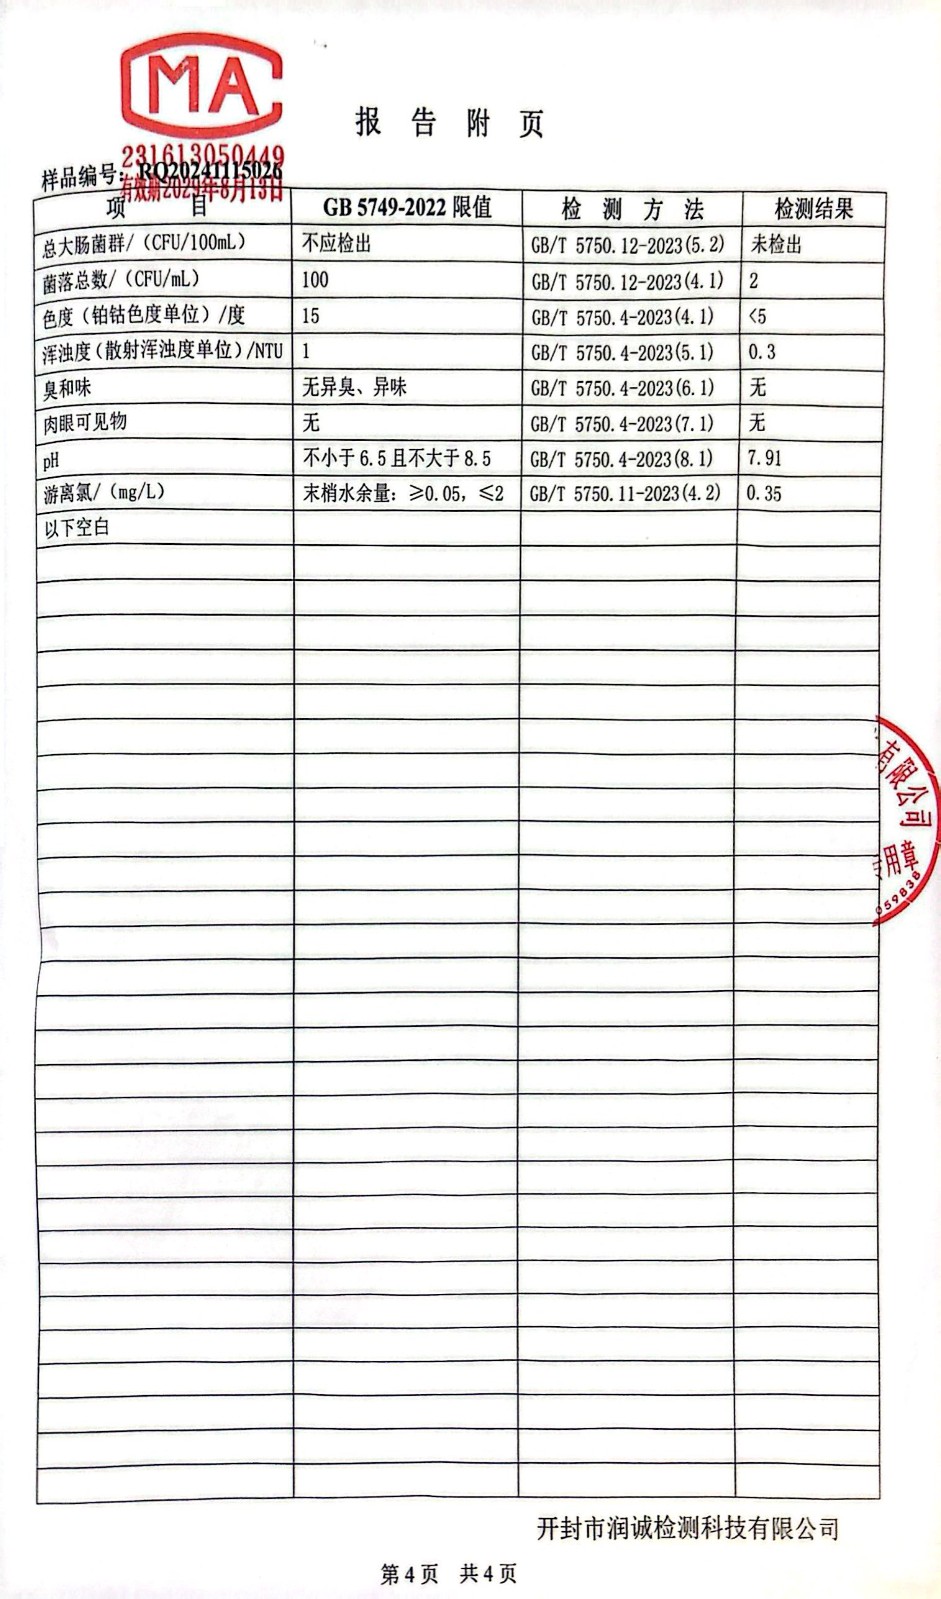 MA
报告附页
231613050449
样品编号：RQ20241115026
有效期2029年8月13日
项 目 GB 5749-2022 限值 检 测 方 法 检测结果
总大肠菌群/（CFU/100mL） 不应检出 GB/T 5750.12-2023(5.2) 未检出
菌落总数/（CFU/mL） 100 GB/T 5750.12-2023(4.1) 2
色度（铂钴色度单位）/度 15 GB/T 5750.4-2023(4.1) <5
浑浊度（散射浑浊度单位）/NTU 1 GB/T 5750.4-2023(5.1) 0.3
臭和味 无异臭、异味 GB/T 5750.4-2023(6.1) 无
肉眼可见物 无 GB/T 5750.4-2023(7.1) 无
pH 不小于6.5且不大于8.5 GB/T 5750.4-2023(8.1) 7.91
游离氯/（mg/L） 末梢水余量：≥0.05，≤2 GB/T 5750.11-2023(4.2) 0.35
以下空白
有限公司
专用章
059838
开封市润诚检测科技有限公司
第4页 共4页